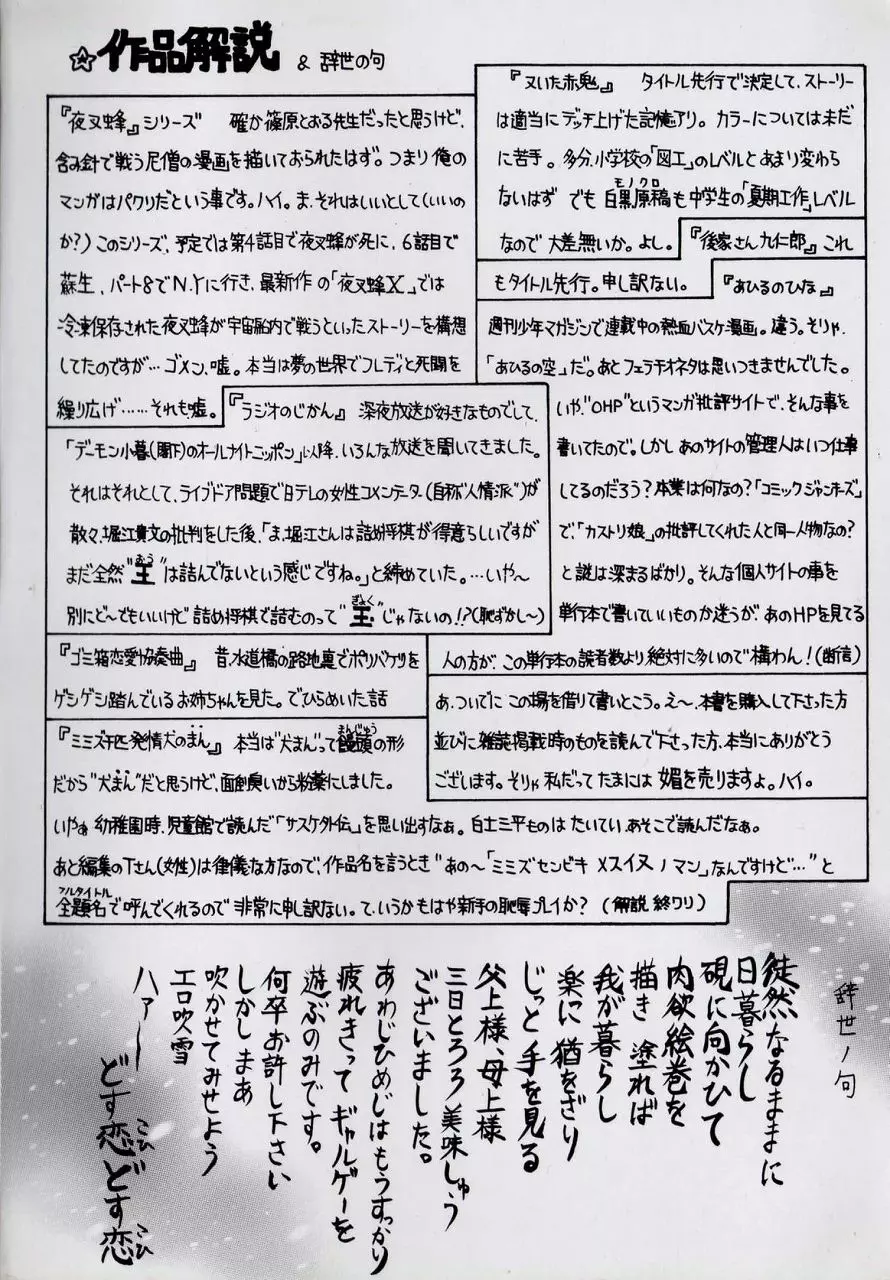 ☆作品解説 & 辞世の句
『夜叉蜂』シリーズ 確か篠原とおる先生だったと思うけど、
含み針で戦う尼僧の漫画を描いておられたはず。つまり俺の
マンガはパクリだという事です。ハイ。ま、それはいいとして(いいの
か?)このシリーズ、予定では第4話目で夜叉蜂が死に、6話目で
蘇生、パート8でN.Yに行き、最新作の「夜叉蜂X」では
冷凍保存された夜叉蜂が宇宙船内で戦うといったストーリーを構想
してたのですが…ゴメン、嘘。本当は夢の世界でフレディと死闘を
繰り広げ……それも嘘。
『ラジオのじかん』 深夜放送が好きなものでして、
「デーモン小暮(閣下)のオールナイトニッポン」以降、いろんな放送を聞いてきました。
それはそれとして、ライブドア問題で日テレの女性コメンテーター(自称"人情派")が
散々、堀江貴文の批判をした後、「ま、堀江さんは詰め将棋が得意らしいですが
まだ全然"王"おうは詰んでないという感じですね。」と締めていた。…いや〜
別にど〜でもいいけど詰め将棋で詰むのって"玉"ぎょくじゃないの!?(恥ずかし〜)
『ゴミ箱恋愛協奏曲』 昔、水道橋の路地裏でポリバケツを
ゲシゲシ踏んでいるお姉ちゃんを見た。でひらめいた話
『ミミズ千匹発情犬のまん』 本当は"犬まん"って饅頭まんじゅうの形
だから"犬まん"だと思うけど、面倒臭いから粉薬にしました。
いやぁ幼稚園時、児童館で読んだ「サスケ外伝」を思い出すなぁ。白土三平ものはたいていあそこで読んだなぁ。
あと編集のTさん(女性)は律儀な方なので、作品名を言うとき"あの〜「ミミズセンビキメスイヌノマン」なんですけど…"と
全題名フルタイトルで呼んでくれるので非常に申し訳ない。て、いうかもはや新手の恥辱プレイか? (解説終ワリ)
『又いた赤鬼』 タイトル先行で決定して、ストーリー
は適当にデッチ上げた記憶アリ。カラーについては未だ
に苦手。多分、小学校の「図工」のレベルとあまり変わら
ないはず でも白黒モノクロ原稿も中学生の「夏期工作」レベル
なので大差無いか。よし。
『後家さん九仁郎』 これ
もタイトル先行。申し訳ない。
『あひるのひな』
週刊少年マガジンで連載中の熱血バスケ漫画。違う。そりゃ、
「あひるの空」だ。あとフェラチオネタは思いつきませんでした。
いや、"OHP"というマンガ批評サイトで、そんな事を
書いてたので。しかしあのサイトの管理人はいつ仕事
してるのだろう?本業は何なの?「コミックジャンキーズ」
で、「カストリ娘」の批評してくれた人と同一人物なの?
と謎は深まるばかり。そんな個人サイトの事を
単行本で書いていいものか迷うが、あのHPを見てる
人の方が、この単行本の読者数より絶対に多いので構わん!(断信)
あ、ついでにこの場を借りて書いとこう。え〜、本書を購入して下さった方
並びに雑誌掲載時のものを読んで下さった方、本当にありがとう
ございます。そりゃ私だってたまには媚を売りますよ。ハイ。
辞世ノ句
徒然なるままに
日暮らし
硯に向かひて
肉欲絵巻を
描き 塗れば
我が暮らし
楽に猶をざり
じっと手を見る
父上様、母上様
三日とろろ美味しゅう
ございました。
あわじひめじはもうすっかり
疲れきって ギャルゲーを
遊ぶのみです。
何卒お許し下さい
しかしまあ
吹かせてみせよう
エロ吹雪
ハァ〜
どす恋こひどす恋こひ